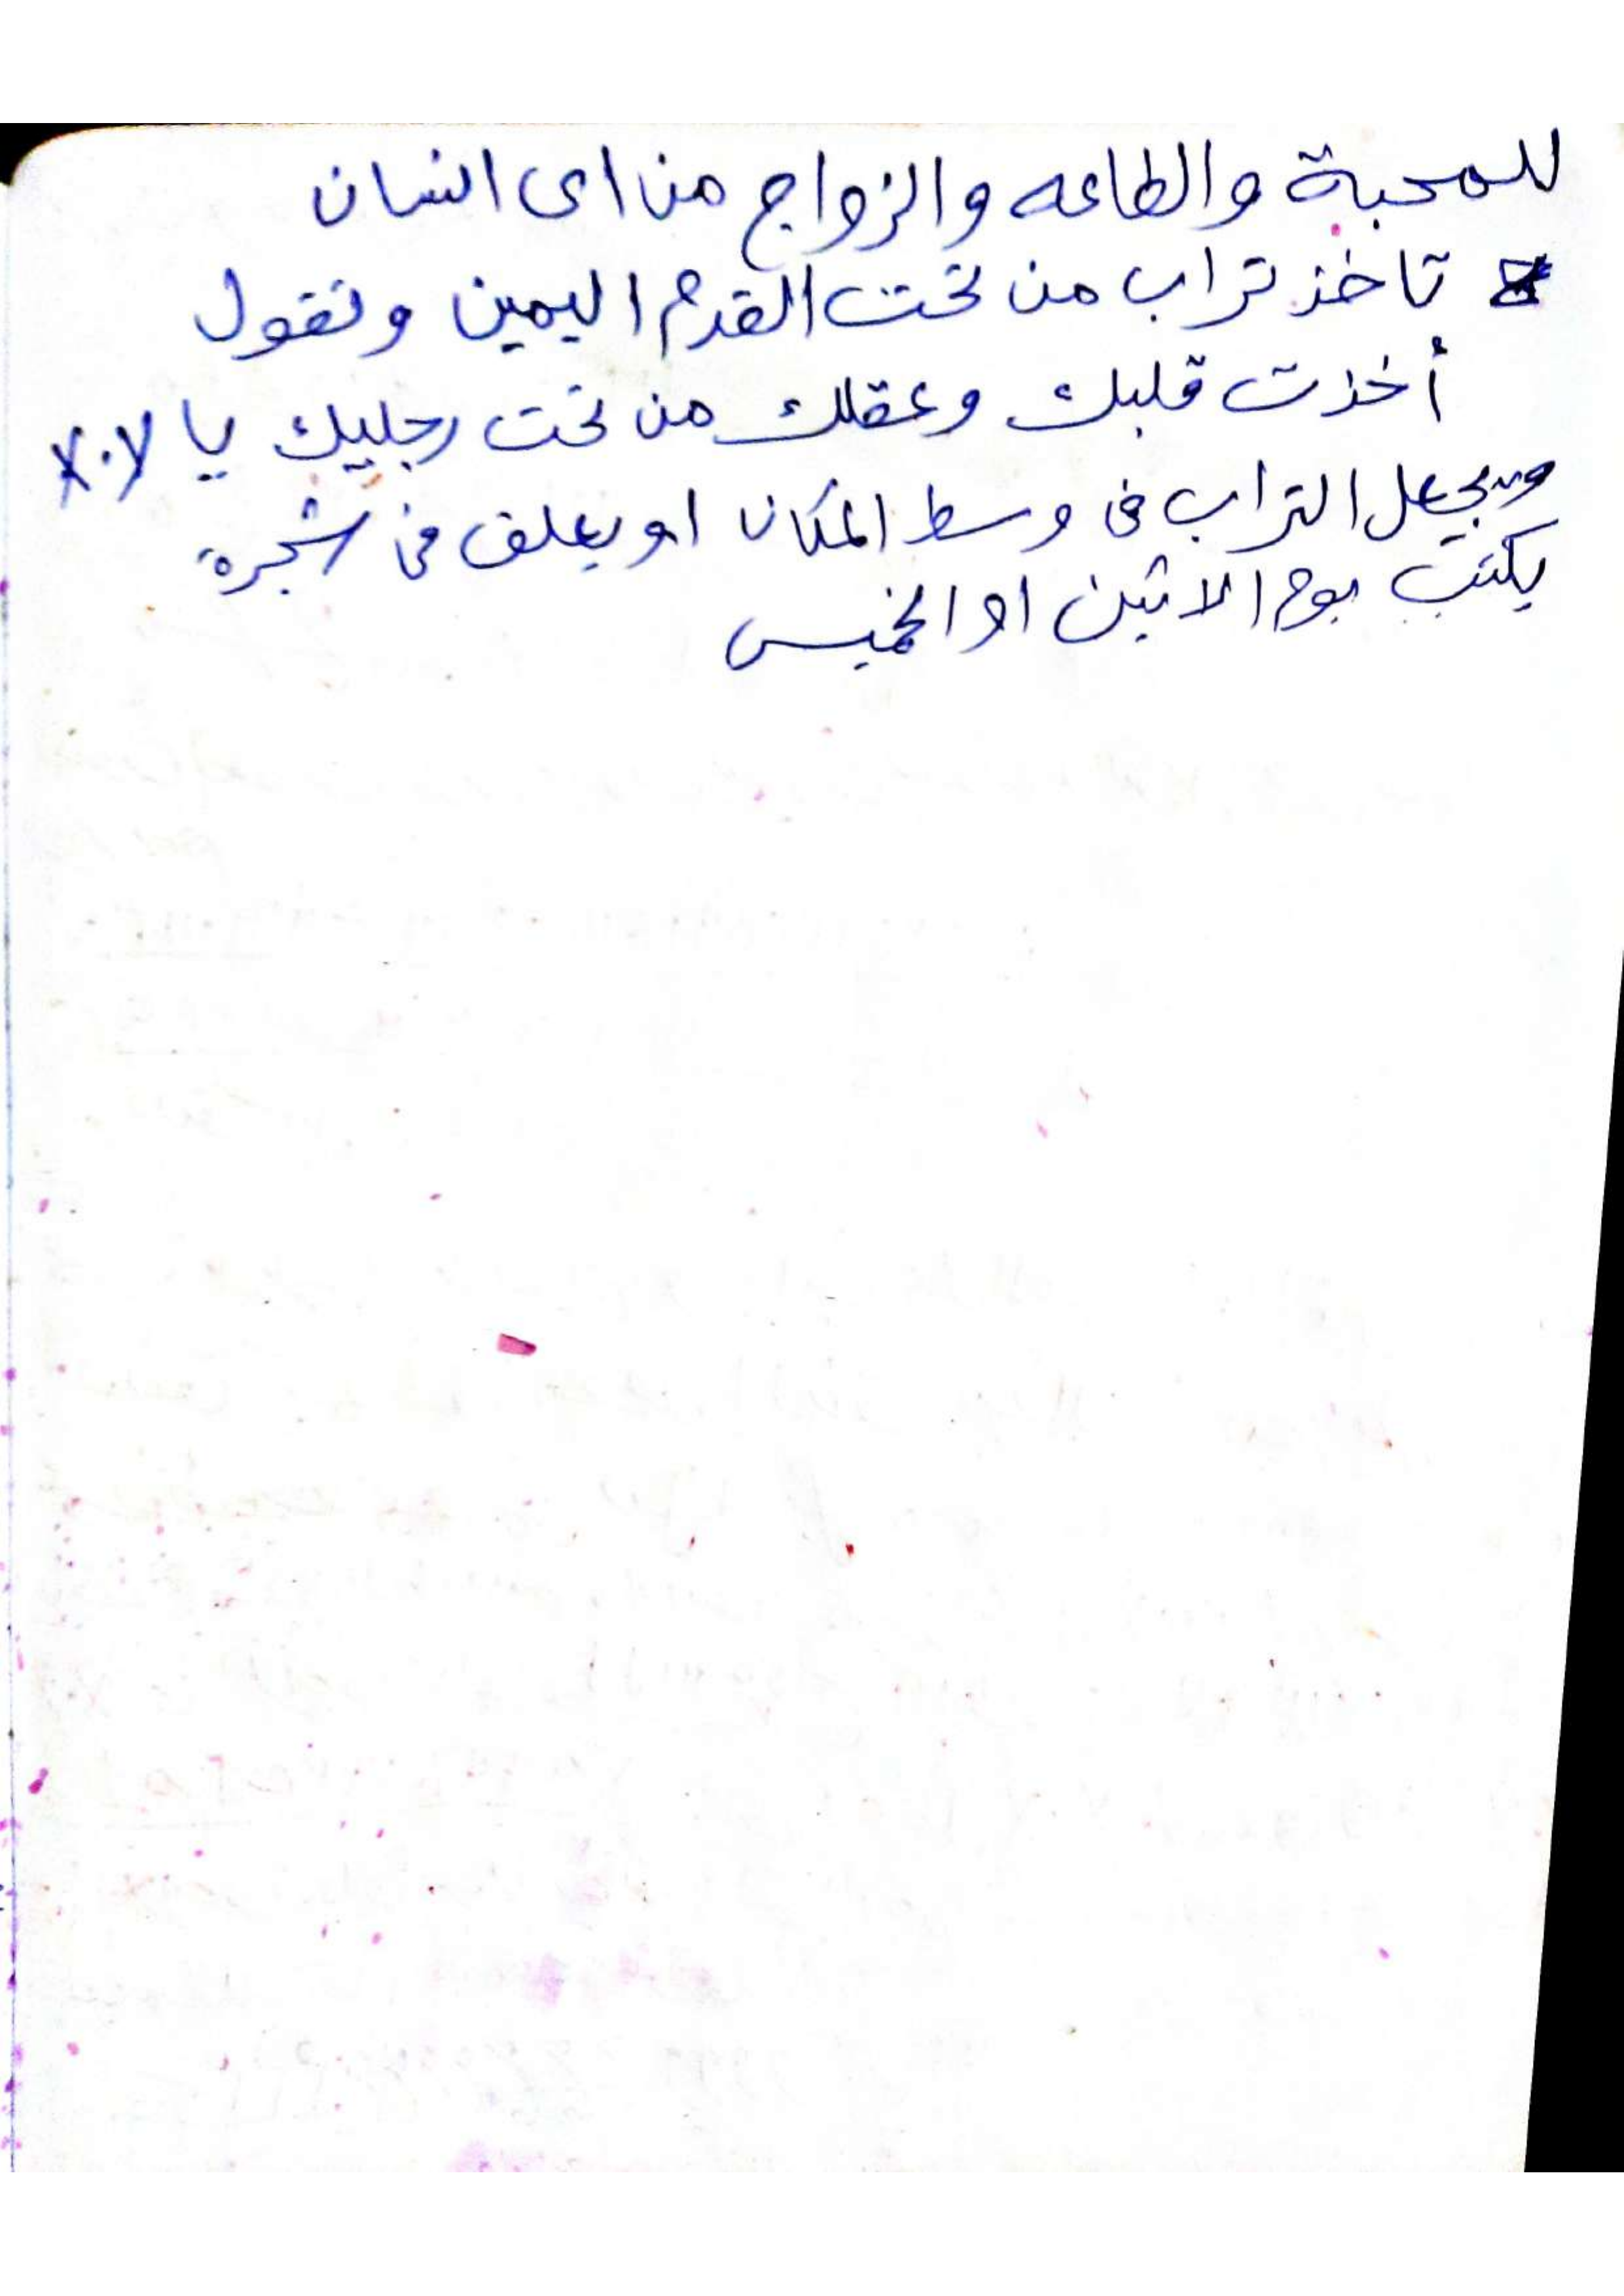 للمحبة والطاعه والزواج من اى انسان
تاخذ تراب من تحت القدم اليمين وتقول
أخذت قلبك وعقلك من تحت رجليك يا
ويجعل التراب فى وسط المكان او يعلق فى شجرة
يكتب يوم الاثنين او الخميس